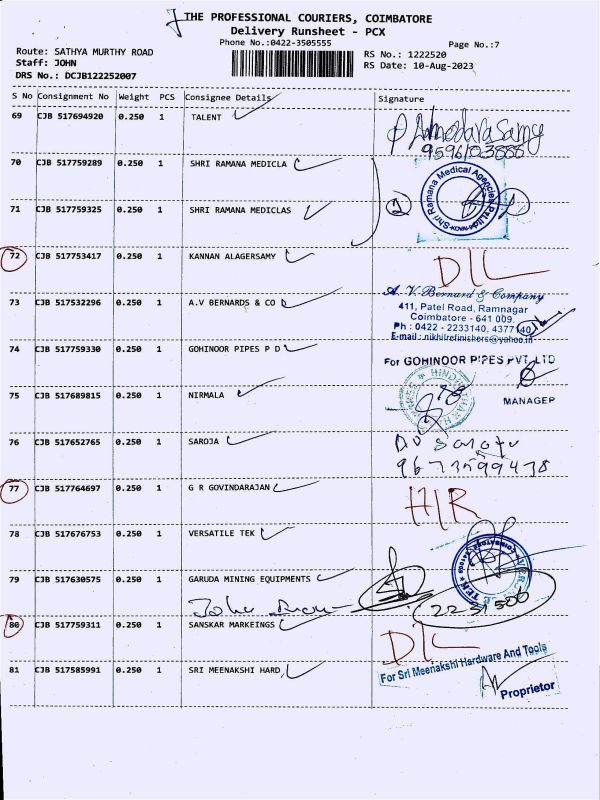 THE PROFESSIONAL COURIERS, COIMBATORE
Delivery Runsheet - PCX
Phone No.:0422-3505555
Page No.:7
Route: SATHYA MURTHY ROAD
RS No.: 1222520
Staff: JOHN
RS Date: 10-Aug-2023
DRS No.: DCJB122252007
S No Consignment No Weight PCS Consignee Details Signature
69 CJB 517694920 0.250 1 TALENT
70 CJB 517759289 0.250 1 SHRI RAMANA MEDICLA
Shri Ramana Medical Agencies Pvt Ltd
71 CJB 517759325 0.250 1 SHRI RAMANA MEDICLAS
72 CJB 517753417 0.250 1 KANNAN ALAGERSAMY D/L
73 CJB 517532296 0.250 1 A.V BERNARDS & CO
A. V. Bernard & Company
411, Patel Road, Ramnagar
Coimbatore - 641 009.
Ph : 0422 - 2233140, 4377140
E-mail : nikhilrefinishers@yahoo.in
74 CJB 517759330 0.250 1 GOHINOOR PIPES P D
For GOHINOOR PIPES PVT LTD
MANAGER
75 CJB 517689815 0.250 1 NIRMALA
76 CJB 517652765 0.250 1 SAROJA
77 CJB 517764697 0.250 1 G R GOVINDARAJAN H/R
78 CJB 517676753 0.250 1 VERSATILE TEK
79 CJB 517630575 0.250 1 GARUDA MINING EQUIPMENTS
80 CJB 517759311 0.250 1 SANSKAR MARKEINGS D/L
81 CJB 517585991 0.250 1 SRI MEENAKSHI HARD
For Sri Meenakshi Hardware And Tools
Proprietor